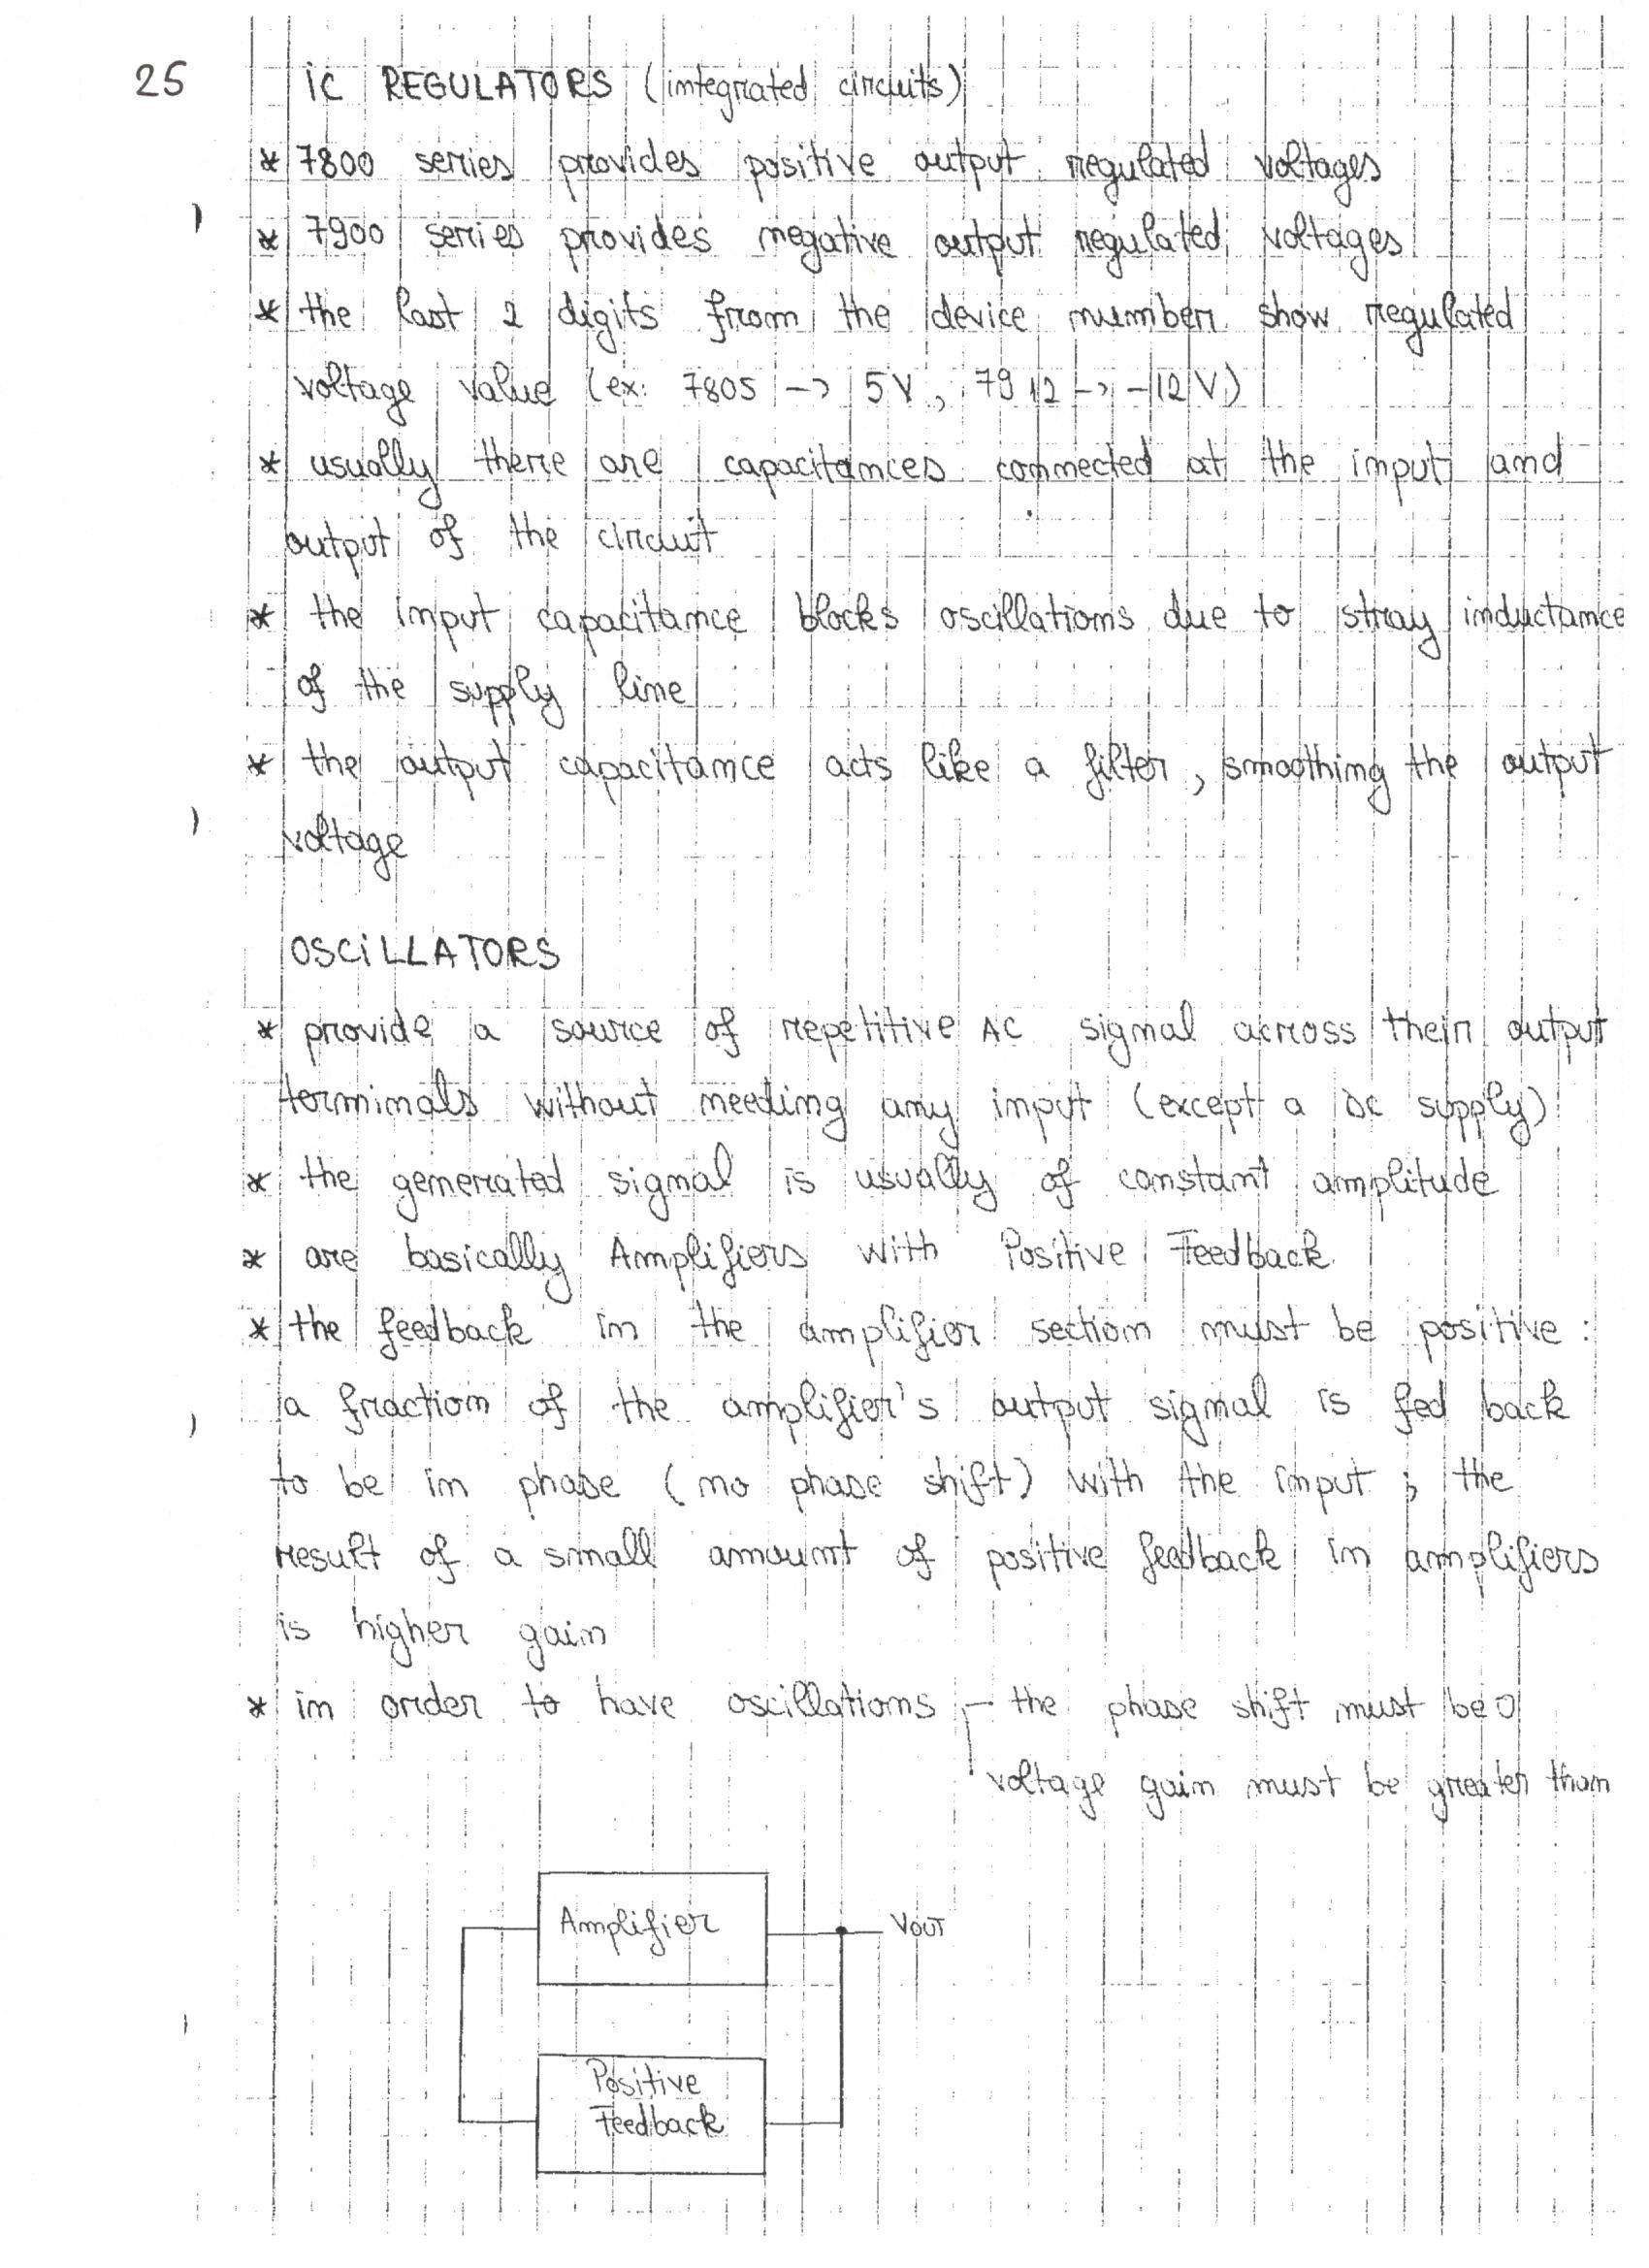 25 iC REGULATORS (integrated circuits)
* 7800 series provides positive output regulated voltages
* 7900 series provides negative output regulated voltages
* the last 2 digits from the device number show regulated
voltage value (ex: 7805 -> 5V, 7912 -> -12V)
* usually there are capacitances connected at the input and
output of the circuit
* the input capacitance blocks oscillations due to stray inductance
of the supply line
* the output capacitance acts like a filter, smoothing the output
voltage
OSCiLLATORS
* provide a source of repetitive AC signal across their output
terminals without needing any input (except a DC supply)
* the generated signal is usually of constant amplitude
* are basically Amplifiers with Positive Feedback
* the feedback in the amplifier section must be positive :
a fraction of the amplifier's output signal is fed back
to be in phase (no phase shift) with the input ; the
result of a small amount of positive feedback in amplifiers
is higher gain
* in order to have oscillations - the phase shift must be 0
voltage gain must be greater than
Amplifier VOUT
Positive
Feedback